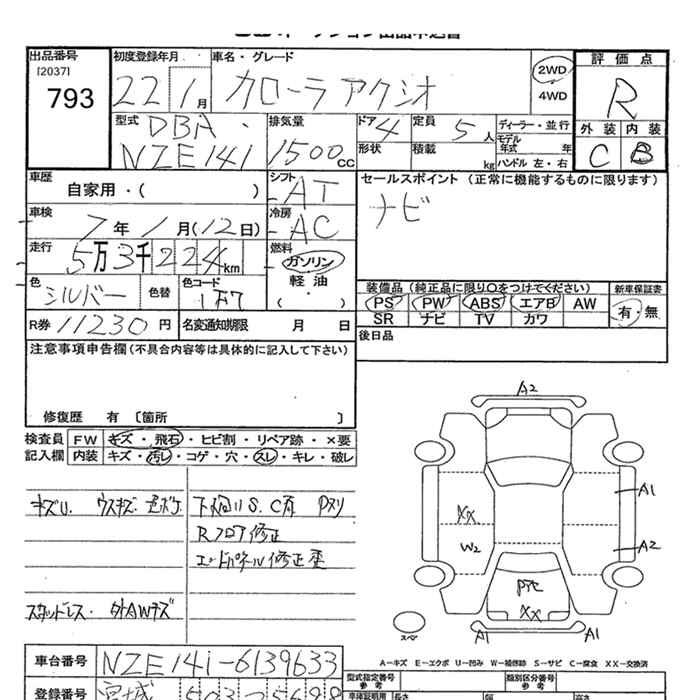 出品番号 初度登録年月 車名・グレード 評価点
[2037]
793 22 1月 カローラ アクシオ 2WD 4WD R
型式 排気量 ドア 定員 ディーラー・並行 外装 内装
DBA・ 4 5人 モデル年式 年
NZE141 1500cc 形状 積載 kg ハンドル 左・右 C B
車歴 シフト セールスポイント (正常に機能するものに限ります)
自家用・( ) AT ナビ
車検 冷房
7年 1月(12日) AC
走行 燃料
5万3千224km ガソリン
色 シルバー 色替 色コード 1F7 軽油 ・ ( )
装備品 (純正品に限り○をつけてください) 新車保証書
PS PW ABS エアB AW 有・無
SR ナビ TV カワ
R券 11230円 名変通知期限 月 日 後日品
注意事項申告欄(不具合内容等は具体的に記入して下さい)
修復歴 有 〔箇所 〕
検査員 FW キズ・飛石・ヒビ割・リペア跡・×要
記入欄 内装 キズ・汚レ・コゲ・穴・スレ・キレ・破レ
キズU. ウスキズ・色ボケ. 下廻りS.C有 Pヌリ
Rフロア修正
エンドパネル修正歪
スタッドレス・外AWキズ
A2
A1
XX
W2 A2
Pれ
XX
スペ A1 A1
A−キズ E−エクボ U−凹み W−補修跡 S−サビ C−腐食 XX−交換済
車台番号 NZE141-6139633 型式指定番号 類別区分番号
登録番号 宮城 503 長さ 幅 高さ